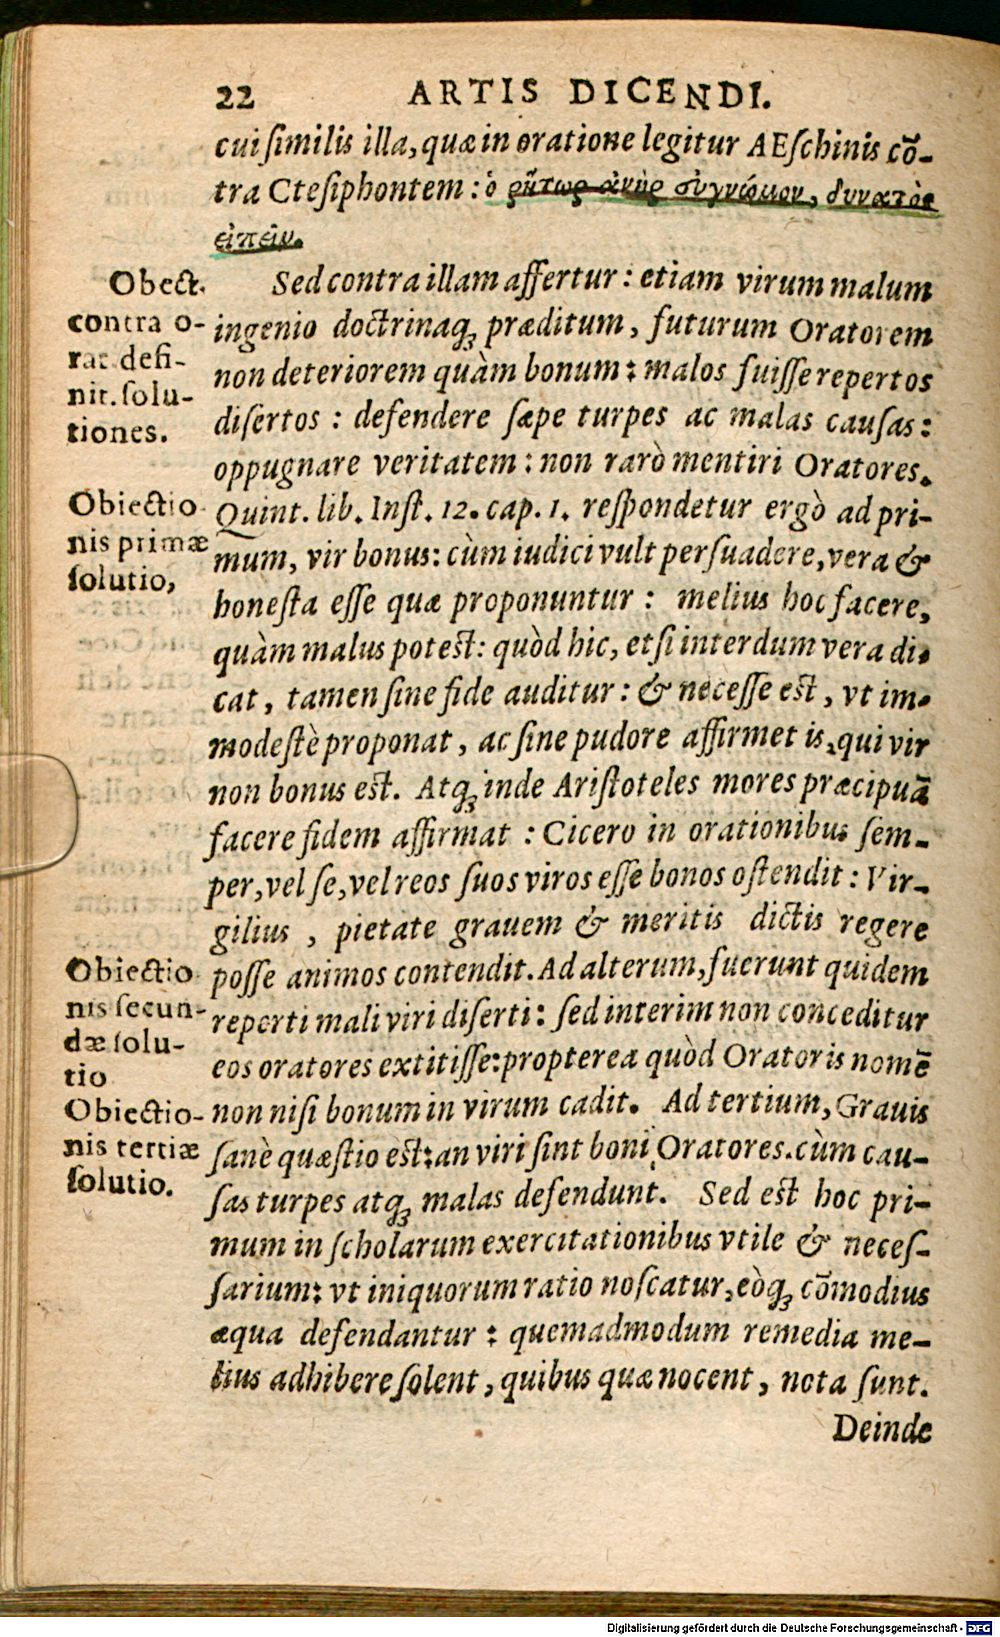 22 ARTIS DICENDI.
cui similis illa, quæ in oratione legitur AEſchinis cō-
tra Cteſiphontem: ὁ ῥήτωρ ἀνὴρ συγνώμων, δυνατὸς
εἰπεῖν.
Obect.
contra o-
rat. defi-
nit. ſolu-
tiones.
Sed contra illam affertur: etiam virum malum
ingenio doctrinaq; præditum, futurum Oratorem
non deteriorem quàm bonum: malos fuiſſe repertos
diſertos: defendere ſæpe turpes ac malas cauſas:
oppugnare veritatem: non rarò mentiri Oratores.
Obiectio
nis primæ
ſolutio,
Quint. lib. Inſt. 12. cap. 1. reſpondetur ergò ad pri-
mum, vir bonus: cùm iudici vult perſuadere, vera &
honeſta eſſe quæ proponuntur: melius hoc facere,
quàm malus poteſt: quòd hic, etſi interdum vera di-
cat, tamen ſine fide auditur: & neceſſe eſt, vt im-
modeſtè proponat, ac ſine pudore affirmet is, qui vir
non bonus eſt. Atq; inde Ariſtoteles mores præcipuā
facere fidem affirmat: Cicero in orationibus ſem-
per, vel ſe, vel reos ſuos viros eſſe bonos oſtendit: Vir-
gilius, pietate grauem & meritis dictis regere
poſſe animos contendit. Ad alterum, fuerunt quidem
Obiectio
nis ſecun-
dæ ſolu-
tio
reperti mali viri diſerti: ſed interim non conceditur
eos oratores extitiſſe: propterea quòd Oratoris nomē
non niſi bonum in virum cadit. Ad tertium, Grauis
Obiectio-
nis tertiæ
ſolutio.
ſanè quæſtio eſt: an viri ſint boni Oratores. cùm cau-
ſas turpes atq; malas defendunt. Sed eſt hoc pri-
mum in ſcholarum exercitationibus vtile & neceſ-
ſarium: vt iniquorum ratio noſcatur, eòq; cōmodius
æqua defendantur: quemadmodum remedia me-
lius adhibere ſolent, quibus quæ nocent, nota ſunt.
Deinde
Digitalisierung gefördert durch die Deutsche Forschungsgemeinschaft - DFG